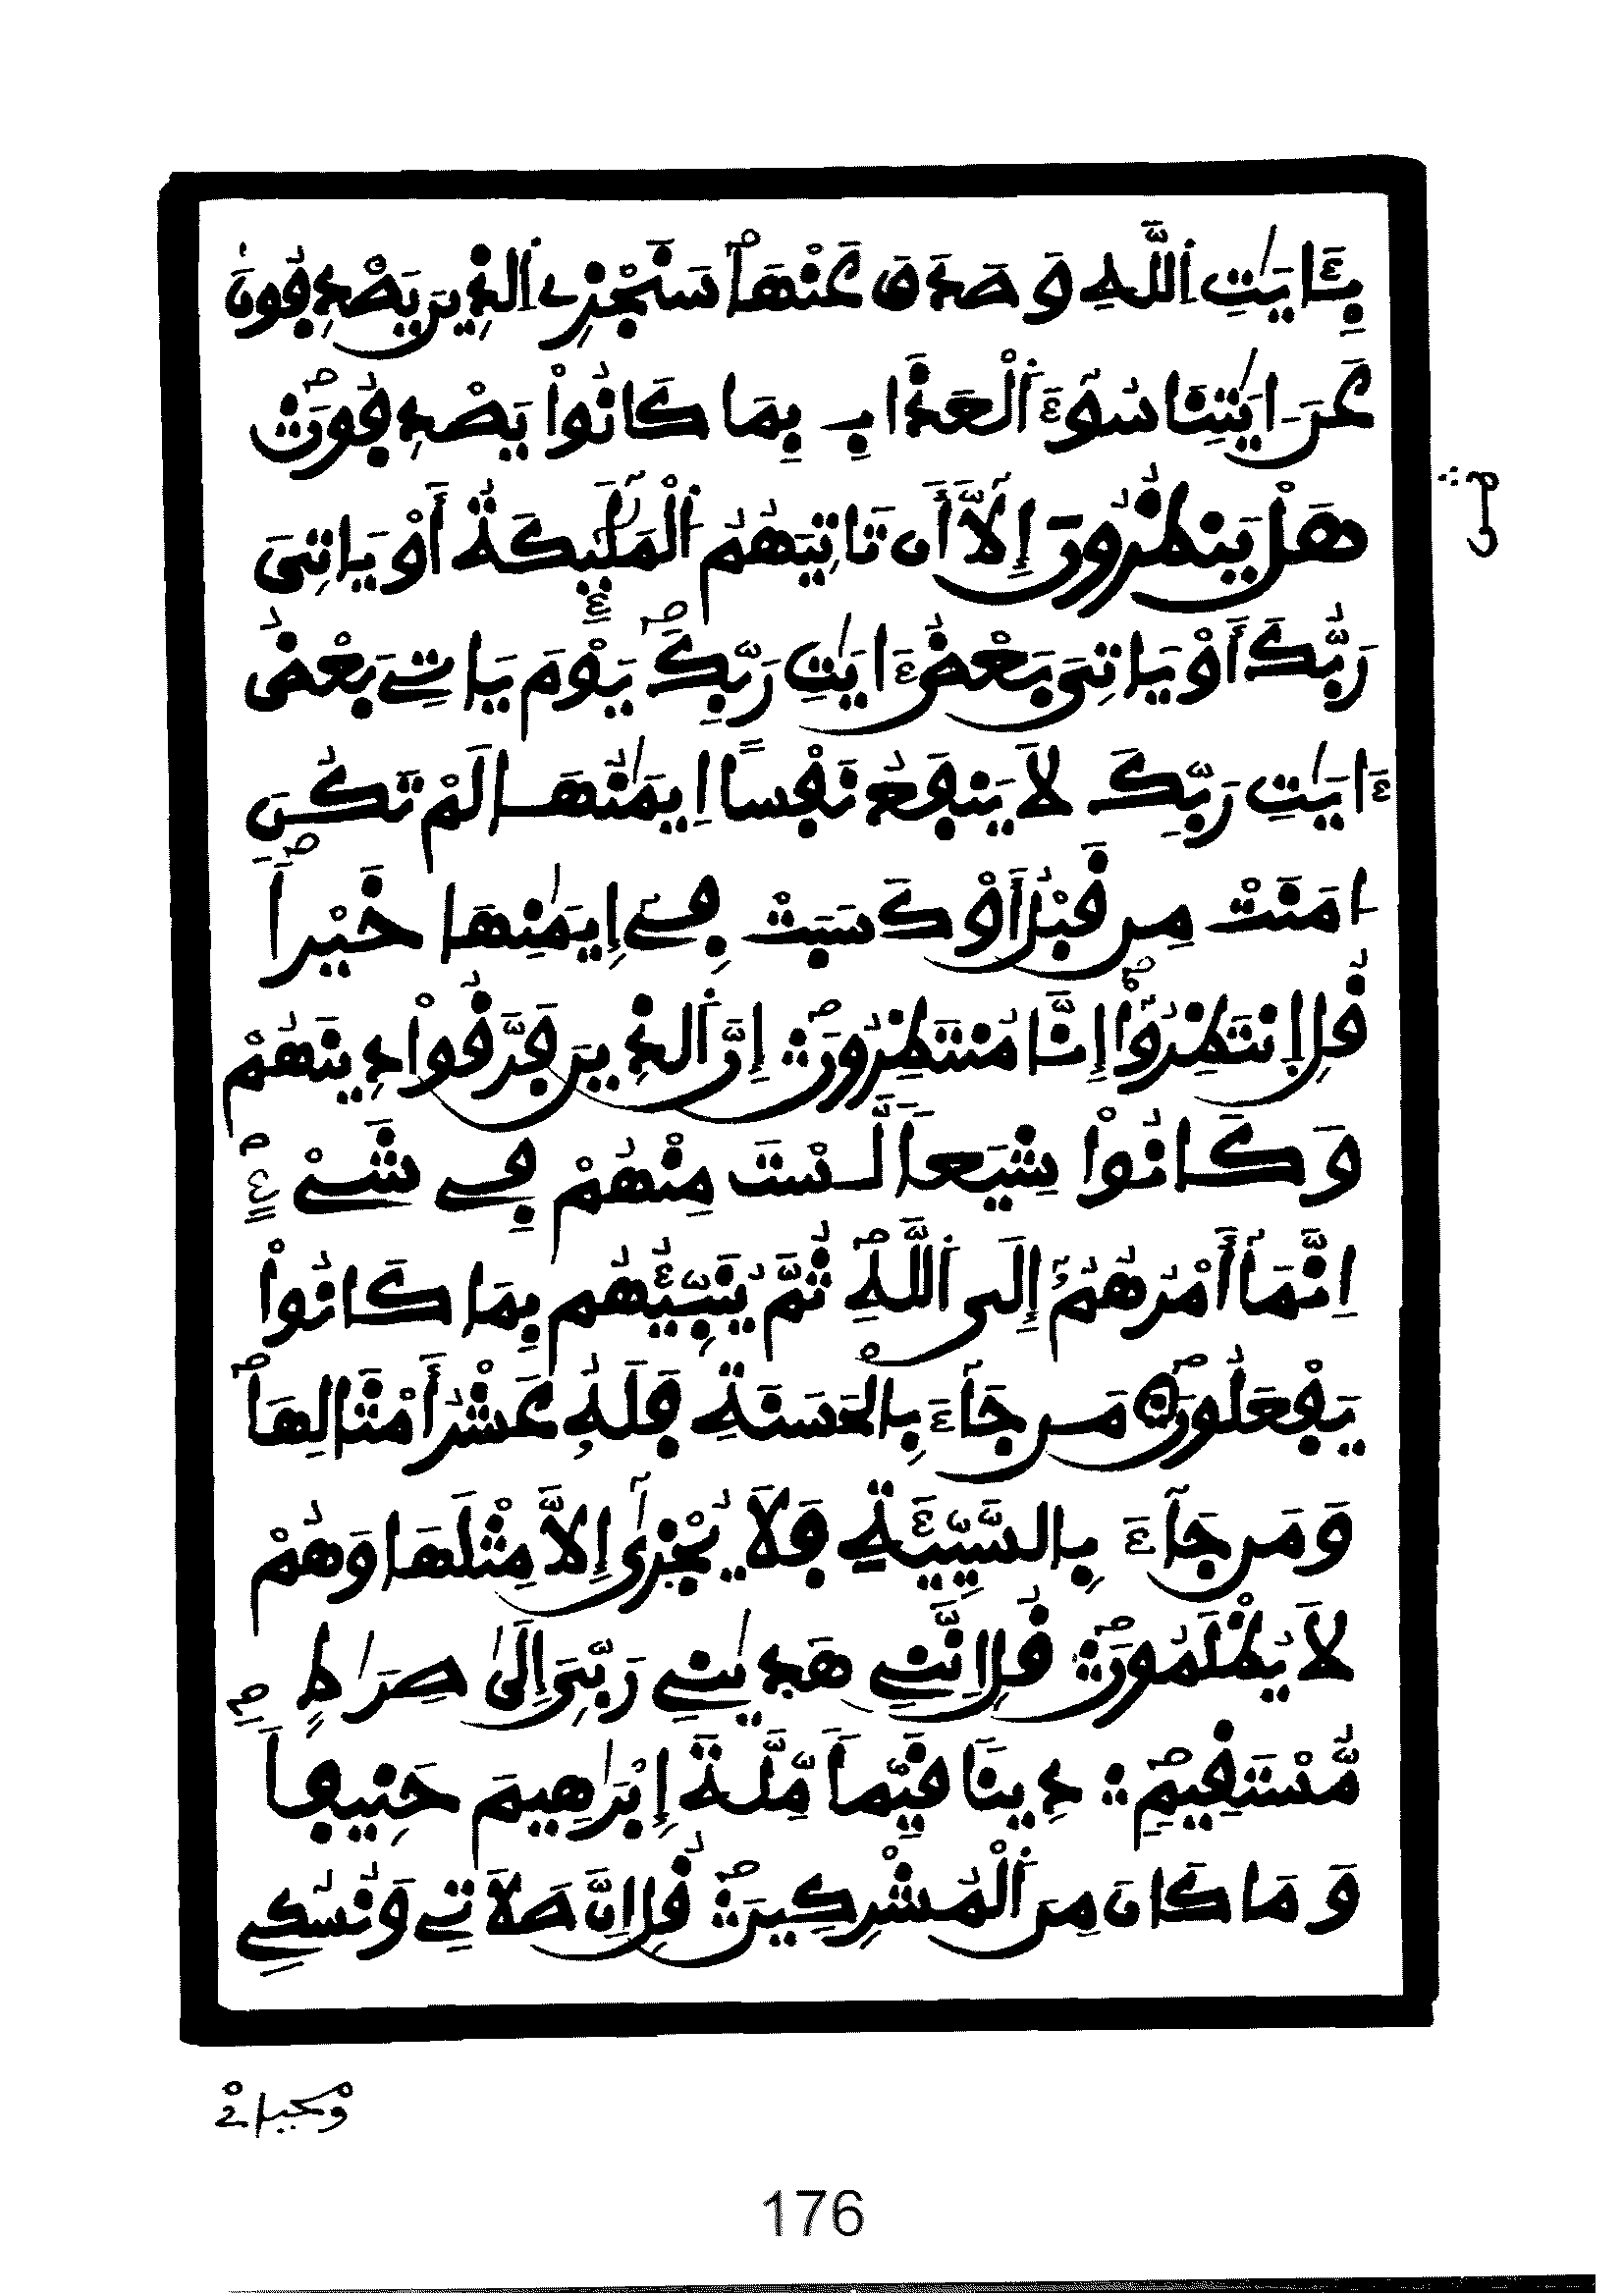 بِـَٔايَٰتِ اِ۬للَّهِ وَصَدَفَ عَنْهَا سَنَجْزِے اِ۬لذِينَ يَصْدِفُونَ
عَنَ اٰيَٰتِنَا سُوٓءَ اَ۬لْعَذَابِ بِمَا كَانُواْ يَصْدِفُونَ
هَلْ يَنظُرُونَ إِلَّآ أَن تَاتِيَهُمُ اُ۬لْمَلَٰٓئِكَةُ أَوْ يَاتِىَ
رَبُّكَ أَوْ يَاتِىَ بَعْضُ ءَايَٰتِ رَبِّكَ يَوْمَ يَاتِے بَعْضُ
ءَايَٰتِ رَبِّكَ لَا يَنفَعُ نَفْساً اِيمَٰنُهَا لَمْ تَكُنَ
اٰمَنَتْ مِن قَبْلُ أَوْ كَسَبَتْ فِےٓ إِيمَٰنِهَا خَيْراً
قُلِ اِ۪نتَظِرُوٓاْ إِنَّا مُنتَظِرُونَ إِنَّ اَ۬لذِينَ فَرَّقُواْ دِينَهُمْ
وَكَانُواْ شِيَعاً لَّسْتَ مِنْهُمْ فِے شَےْءٍ
اِنَّمَآ أَمْرُهُمُۥٓ إِلَى اَ۬للَّهِ ثُمَّ يُنَبِّئُهُم بِمَا كَانُواْ
يَفْعَلُونَ مَن جَآءَ بِالْحَسَنَةِ فَلَهُۥ عَشْرُ أَمْثَالِهَا
وَمَن جَآءَ بِالسَّيِّئَةِ فَلَا يُجْزَىٰٓ إِلَّا مِثْلَهَا وَهُمْ
لَا يُظْلَمُونَ قُلِ اِنَّنِے هَدَيٰنِے رَبِّىَ إِلَىٰ صِرَٰطٍ
مُّسْتَقِيمٍ دِيناً قَيِّماً مِّلَّةَ إِبْرَٰهِيمَ حَنِيفاً
وَمَا كَانَ مِنَ اَ۬لْمُشْرِكِينَ قُلِ اِنَّ صَلَاتِے وَنُسُكِے
وَمَحْيَاےْ
176